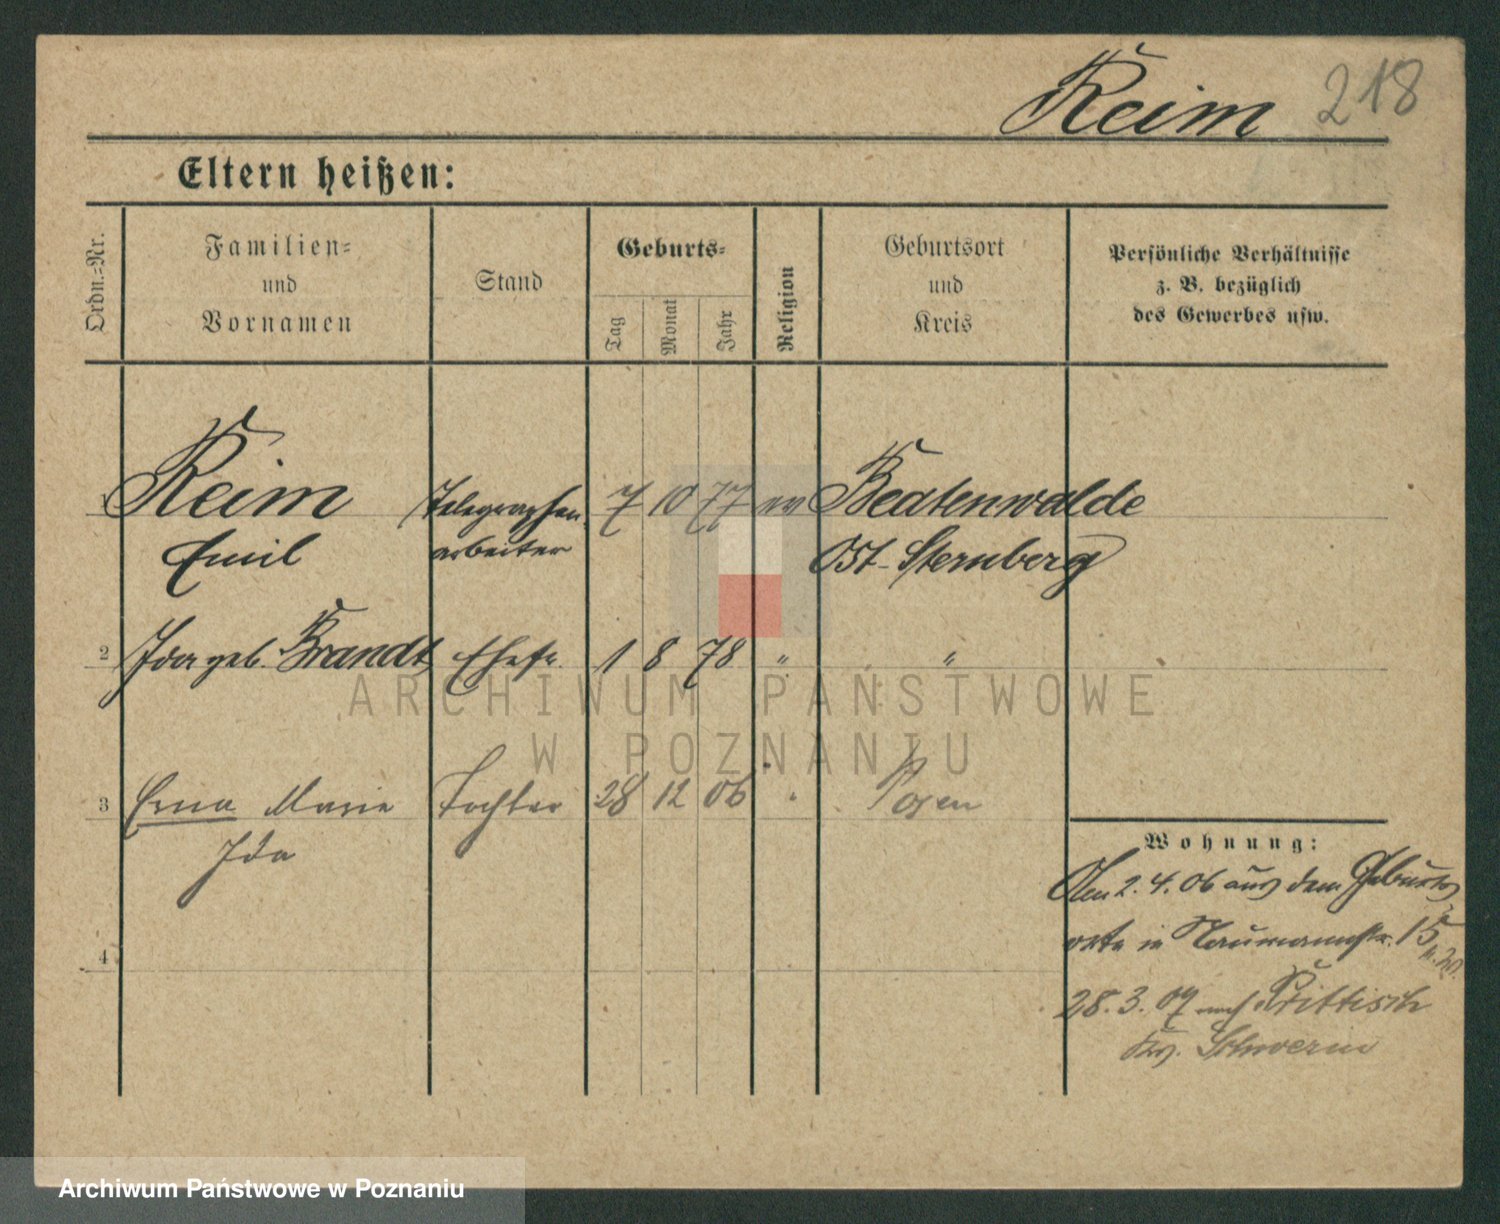 Reim 218
Eltern heißen:
Ordn.=Nr.
Familien=
und
Vornamen
Stand
Geburts=
Tag
Monat
Jahr
Religion
Geburtsort
und
Kreis
Persönliche Verhältnisse
z. B. bezüglich
des Gewerbes usw.
1 Reim Telegraphen- 7 10 77 ev Beatenwalde
Emil arbeiter Ost-Sternberg
2 Ida geb. Brandt Ehefr. 1 8 78 " "
3 Erna Marie Tochter 28 12 06 " Posen
Ida
4
Wohnung:
Am 2. 4. 06 aus dem Geburts-
orte in Naumannstr. 15
28. 3. 07 nach Krittisch
Krs. Schwerin
ARCHIWUM PAŃSTWOWE
W POZNANIU
Archiwum Państwowe w Poznaniu